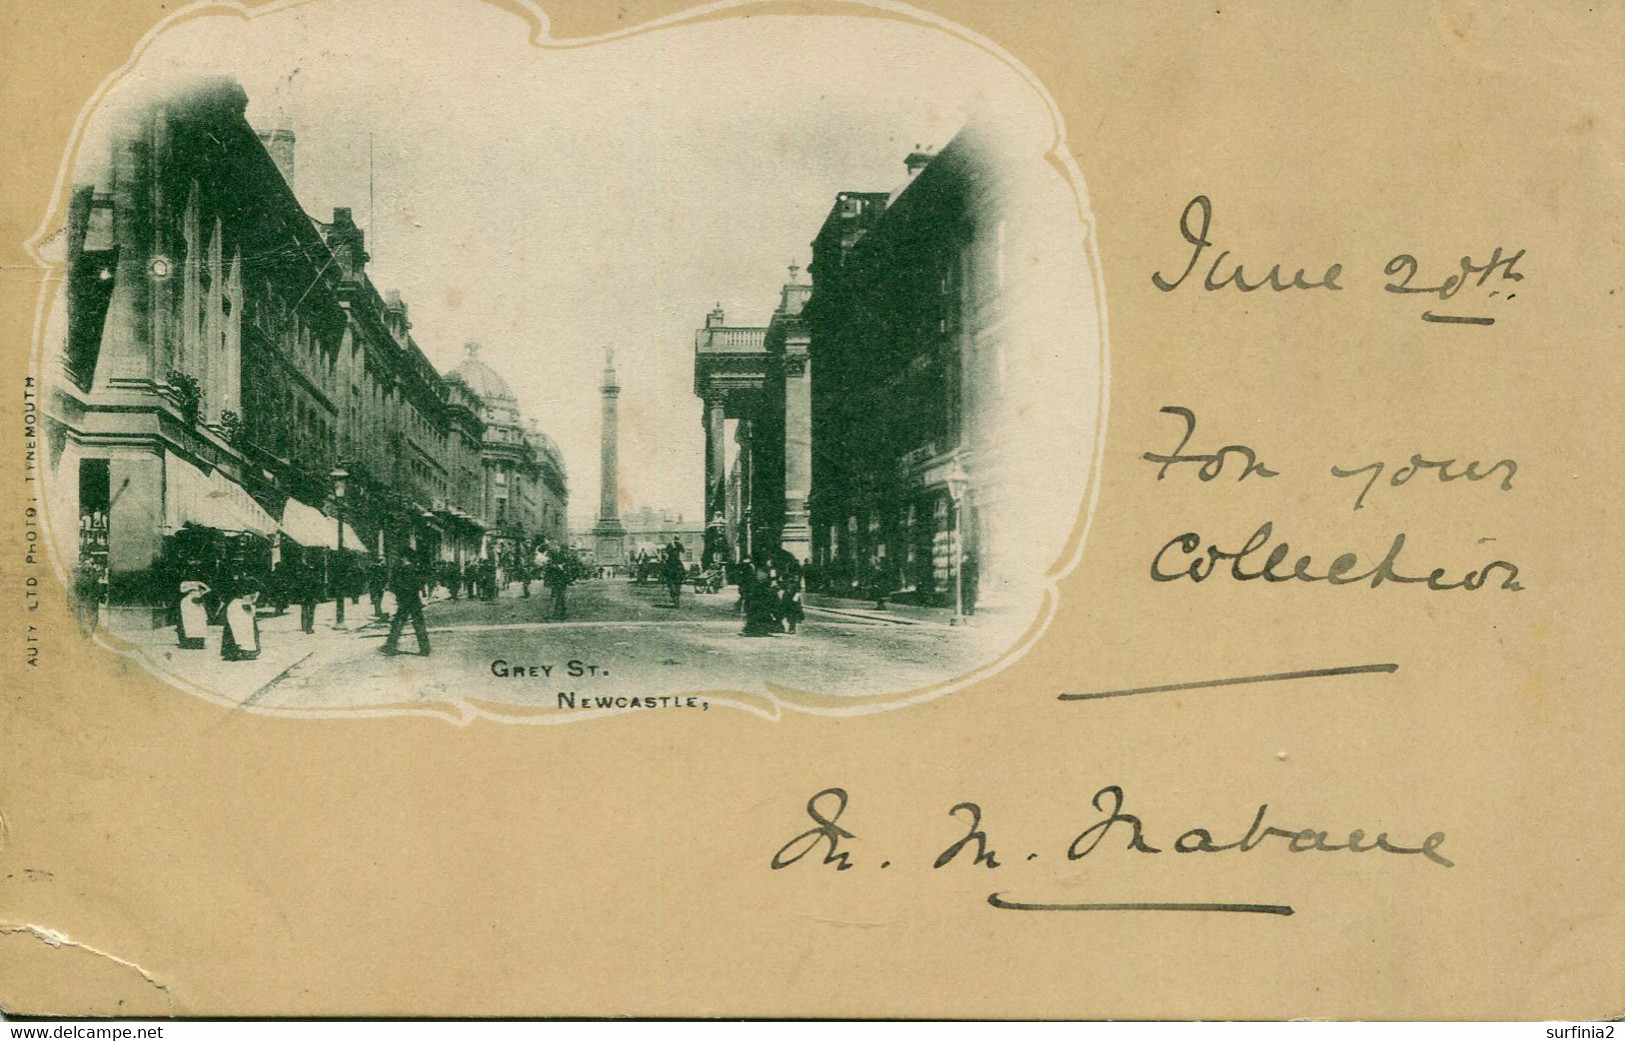 June 20th
For your
collection
Grey St.
Newcastle,
AUTY LTD PHOTO: TYNEMOUTH
M. M. Mabane
www.delcampe.net
surfinia2